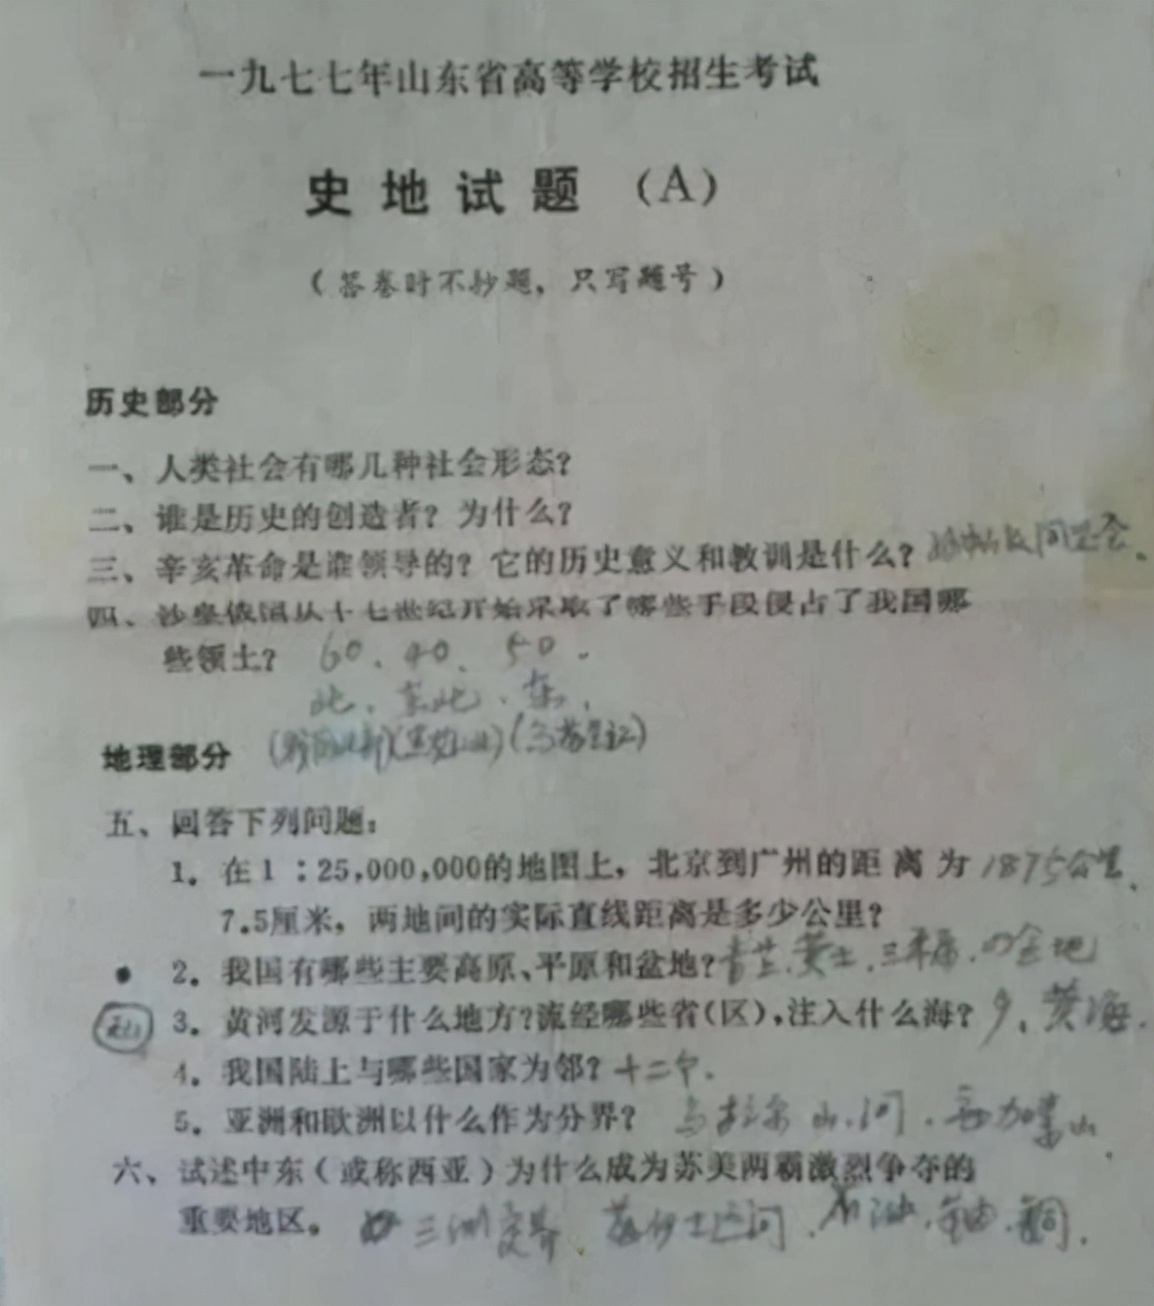 一九七七年山东省高等学校招生考试
史地试题 (A)
(答卷时不抄题，只写题号)
历史部分
一、人类社会有哪几种社会形态?
二、谁是历史的创造者? 为什么?
三、辛亥革命是谁领导的? 它的历史意义和教训是什么? 同盟会、
四、沙皇俄国从十七世纪开始采取了哪些手段侵占了我国哪
些领土? 60、40、50.
北、东北、东、
地理部分
五、回答下列问题:
1. 在1:25,000,000的地图上，北京到广州的距离为 1875公里、
7.5厘米，两地间的实际直线距离是多少公里?
2. 我国有哪些主要高原、平原和盆地? 三平原、四盆地
3. 黄河发源于什么地方?流经哪些省(区),注入什么海? 9、黄海.
4. 我国陆上与哪些国家为邻? 十二个.
5. 亚洲和欧洲以什么作为分界? 乌拉尔山、河、高加索山
六、试述中东(或称西亚)为什么成为苏美两霸激烈争夺的
重要地区。 三洲交界、苏伊士运河、石油、铀、铜.